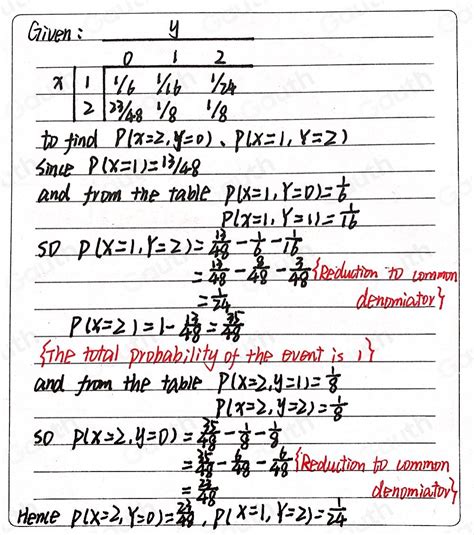 Given: y
0 1 2
x 1 1/6 1/16 1/24
2 23/48 1/8 1/8
to find P(x=2,y=0)、P(x=1,Y=2)
Since P(X=1)=13/48
and from the table P(X=1,Y=0)=1/6
P(X=1,Y=1)=1/16
SO P(X=1,Y=2)=13/48-1/6-1/16
=13/48-8/48-3/48{Reduction to common
=1/24 denomiator}
P(X=2)=1-13/48=35/48
{The total probability of the event is 1}
and from the table P(X=2,Y=1)=1/8
P(X=2,Y=2)=1/8
SO P(X=2,Y=0)=35/48-1/8-1/8
=35/48-6/48-6/48{Reduction to common
=23/48 denomiator}
Hence P(X=2,Y=0)=23/48,P(X=1,Y=2)=1/24